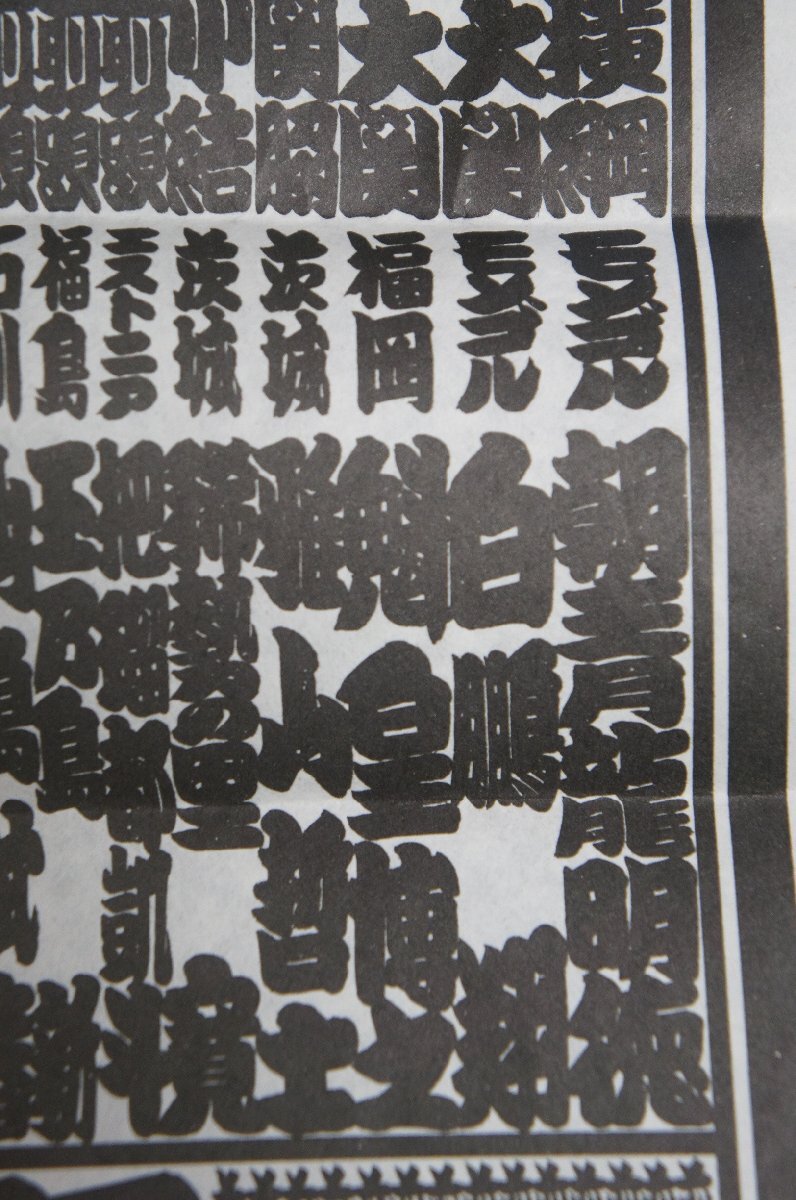 横綱 モンゴル 朝青龍明徳
大関 モンゴル 白鵬翔
大関 福岡 魁皇博之
関脇 茨城 雅山哲士
小結 茨城 稀勢の里寛
前頭 エストニア 把瑠都凱斗
前頭 福島 玉乃島新